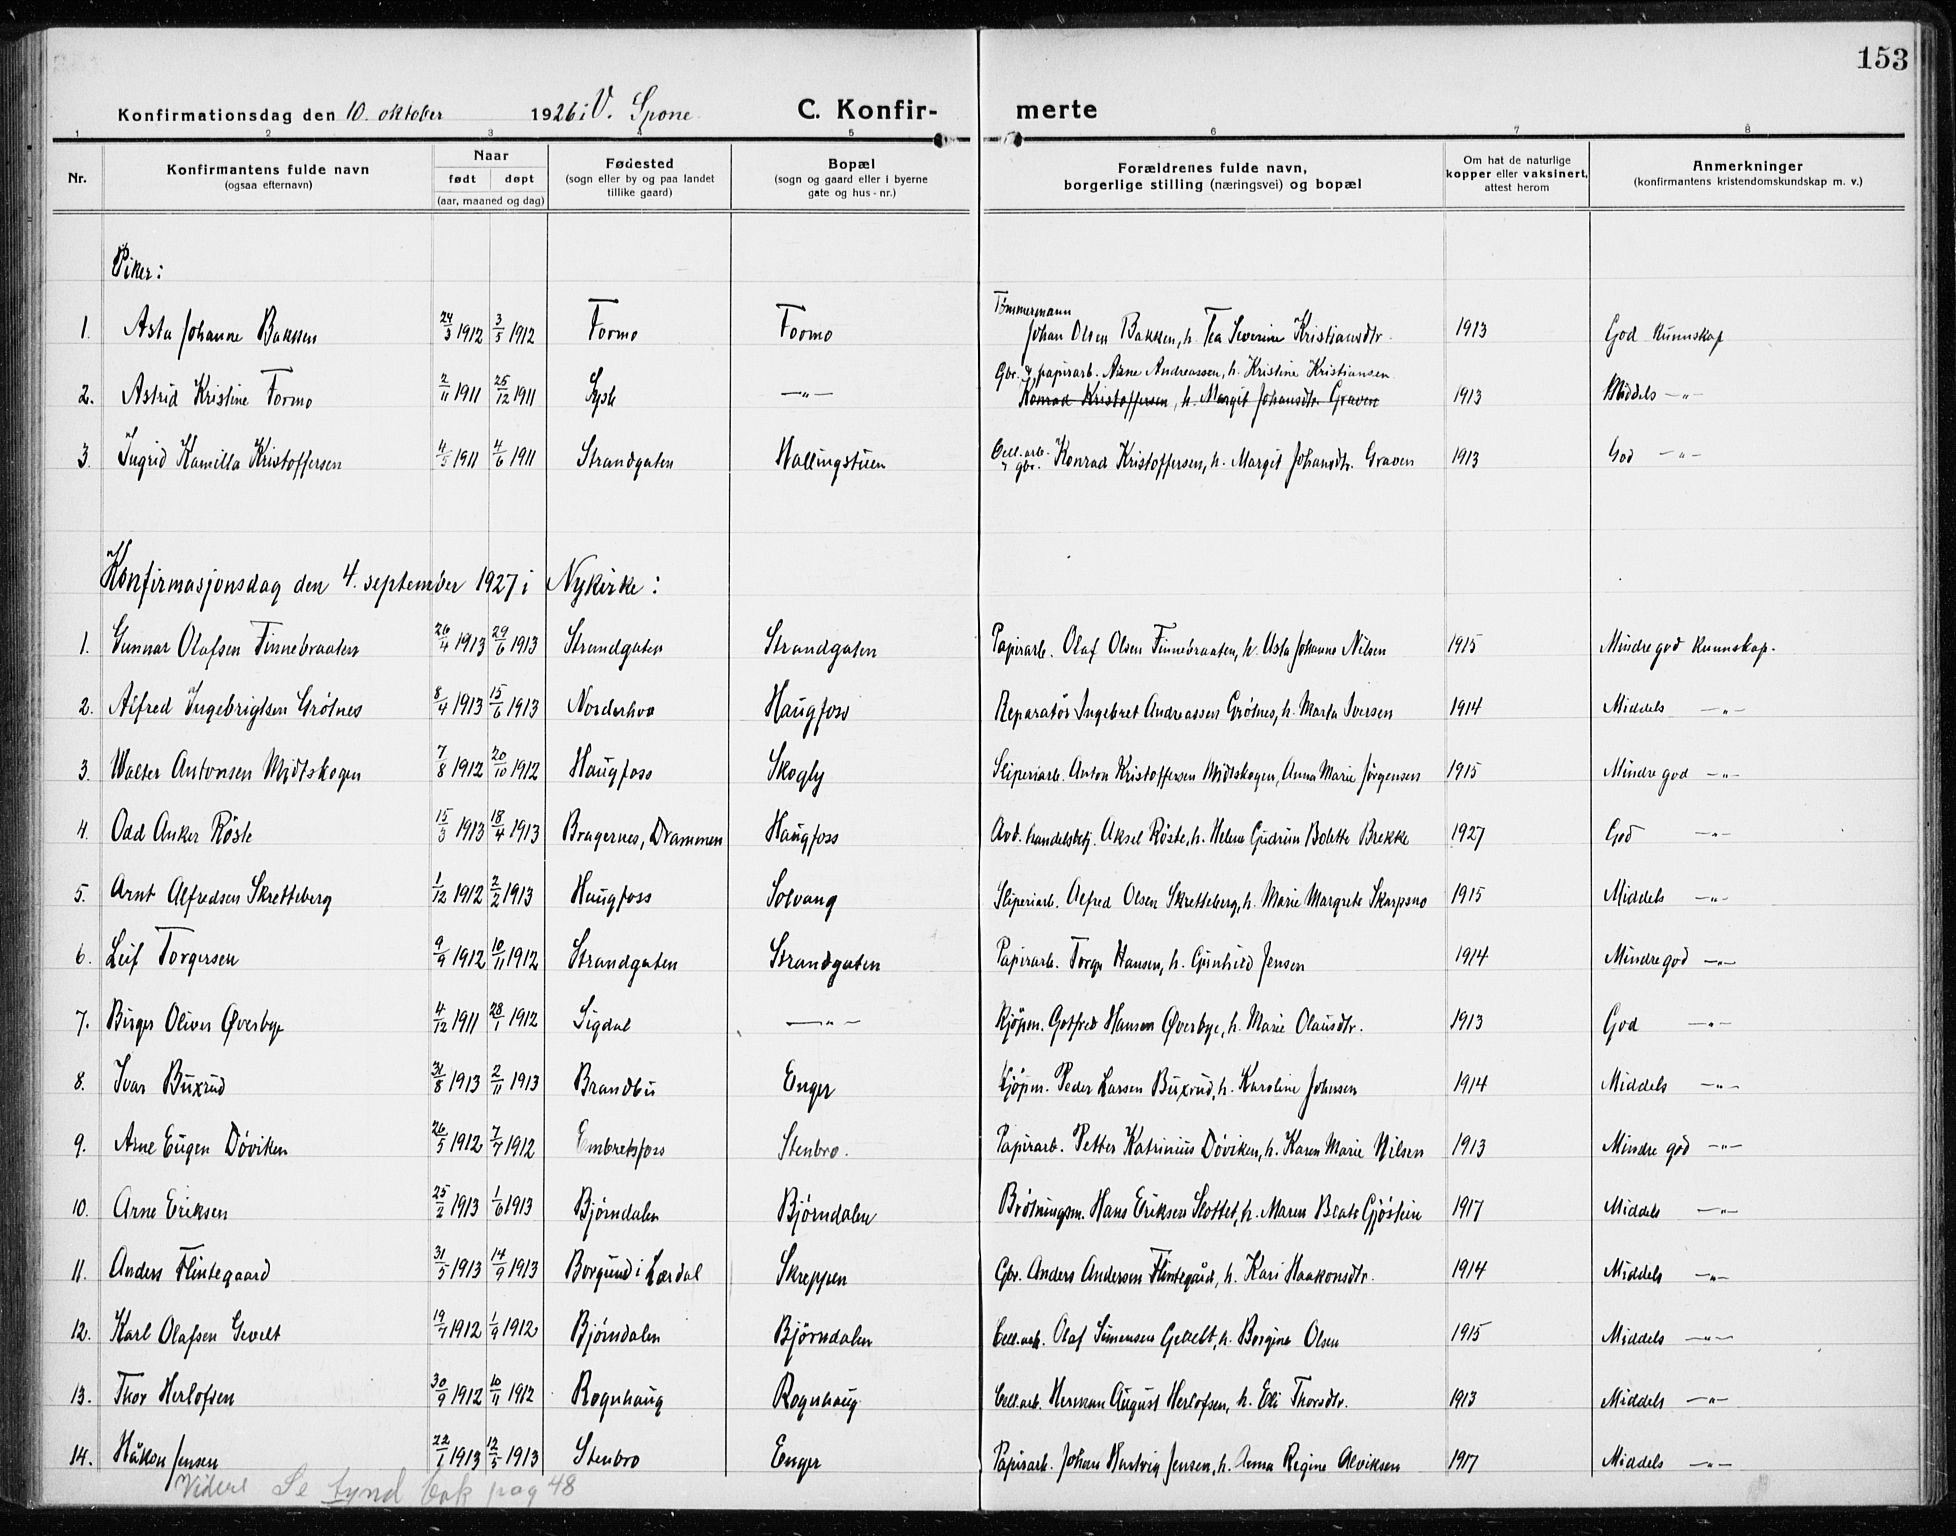 153
Konfirmationsdag den 10. oktober 1926 i V. Spone C. Konfir- merte
1 2 3 4 5 6 7 8
Nr. Konfirmantens fulde navn (ogsaa efternavn) Naar født døpt (aar, maaned og dag) Fødested (sogn eller by og paa landet tillike gaard) Bopæl (sogn og gaard eller i byerne gate og hus-nr.) Forældrenes fulde navn, borgerlige stilling (næringsvei) og bopæl Om hat de naturlige kopper eller vaksinert, attest herom Anmerkninger (konfirmantens kristendomskundskap m. v.)
Piker:
1. Asta Johanne Bakken 24/3 1912 3/5 1912 Formo Formo Tømmermann Johan Olsen Bakken, h. Tea Severine Kristiansdtr. 1913 God kunnskap
2. Astrid Kristine Formo 2/11 1911 25/12 1911 Sysle —"— Gbr. & papirarb. Arne Andreassen, h. Kristine Kristiansen Konrad Kristoffersen, h. Margit Johansdtr. Graven 1913 Middels —"—
3. Ingrid Kamilla Kristoffersen 4/5 1911 4/6 1911 Strandgaten Hallingstuen Cell.arb. & gbr. Konrad Kristoffersen, h. Margit Johansdtr. Graven 1913 God —"—
Konfirmasjonsdag den 4. september 1927 i Nykirke:
1. Gunnar Olafsen Finnebraaten 26/4 1913 29/6 1913 Strandgaten Strandgaten Papirarb. Olaf Olsen Finnebraaten, h. Asta Johanne Nilsen 1915 Mindre god kunnskap.
2. Alfred Ingebrigtsen Grøtnes 8/4 1913 15/6 1913 Norderhov Haugfoss Reparatør Ingebret Andreassen Grøtnes, h. Marta Iversen 1914 Middels —"—
3. Walter Antonsen Midtskogen 7/8 1912 20/10 1912 Haugfoss Skogly Sliperiarb. Anton Kristoffersen Midtskogen, Anna Marie Jørgensen 1915 Mindre god —"—
4. Odd Anker Røste 15/3 1913 18/4 1913 Bragernes, Drammen Haugfoss Avd. handelsbetj. Aksel Røste, h. Helene Gudrun Bolette Brekke 1927 God —"—
5. Arnt Alfredsen Skretteberg 1/12 1912 2/2 1913 Haugfoss Solvang Sliperiarb. Alfred Olsen Skretteberg, h. Marie Margrete Skarpsno 1915 Middels —"—
6. Leif Torgersen 9/9 1912 10/11 1912 Strandgaten Strandgaten Papirarb. Torge Hansen, h. Gunhild Jensen 1914 Mindre god —"—
7. Birger Oliver Øverbye 4/12 1911 28/1 1912 Sigdal —"— Kjøpm. Gotfred Hansen Øverbye, h. Marie Olausdtr. 1913 God —"—
8. Ivar Buxrud 31/8 1913 2/11 1913 Brandbu Enger Kjøpm. Peder Larsen Buxrud, h. Karoline Johnsen 1914 Middels —"—
9. Arne Eugen Døviken 26/5 1912 7/7 1912 Embretsfoss Stenbro. Papirarb. Petter Katrinius Døviken, h. Karen Marie Nilsen 1913 Mindre god —"—
10. Arne Eriksen 25/2 1913 1/6 1913 Bjørndalen Bjørndalen Brøtningsm. Hans Eriksen Slottet, h. Maren Beate Gjøstein 1917 Middels —"—
11. Anders Flintegaard 31/5 1913 14/9 1913 Borgund i Lærdal Skreppen Gbr. Anders Andersen Flintegård, h. Kari Haakonsdtr. 1914 Middels —"—
12. Karl Olafsen Gevelt 19/7 1912 1/9 1912 Bjørndalen Bjørndalen Cell.arb. Olaf Simensen Gevelt, h. Borgine Olsen 1915 Middels —"—
13. Thor Herlofsen 30/9 1912 10/11 1912 Rognhaug Rognhaug Cell.arb. Herman August Herlofsen, h. Eli Thorsdtr. 1913 Middels —"—
14. Håkon Jensen 22/1 1913 12/5 1913 Stenbro Enger Papirarb. Johan Hartvig Jensen, h. Anna Regine Alviksen 1917 Middels —"—
Videre Se tynd bok pag 48